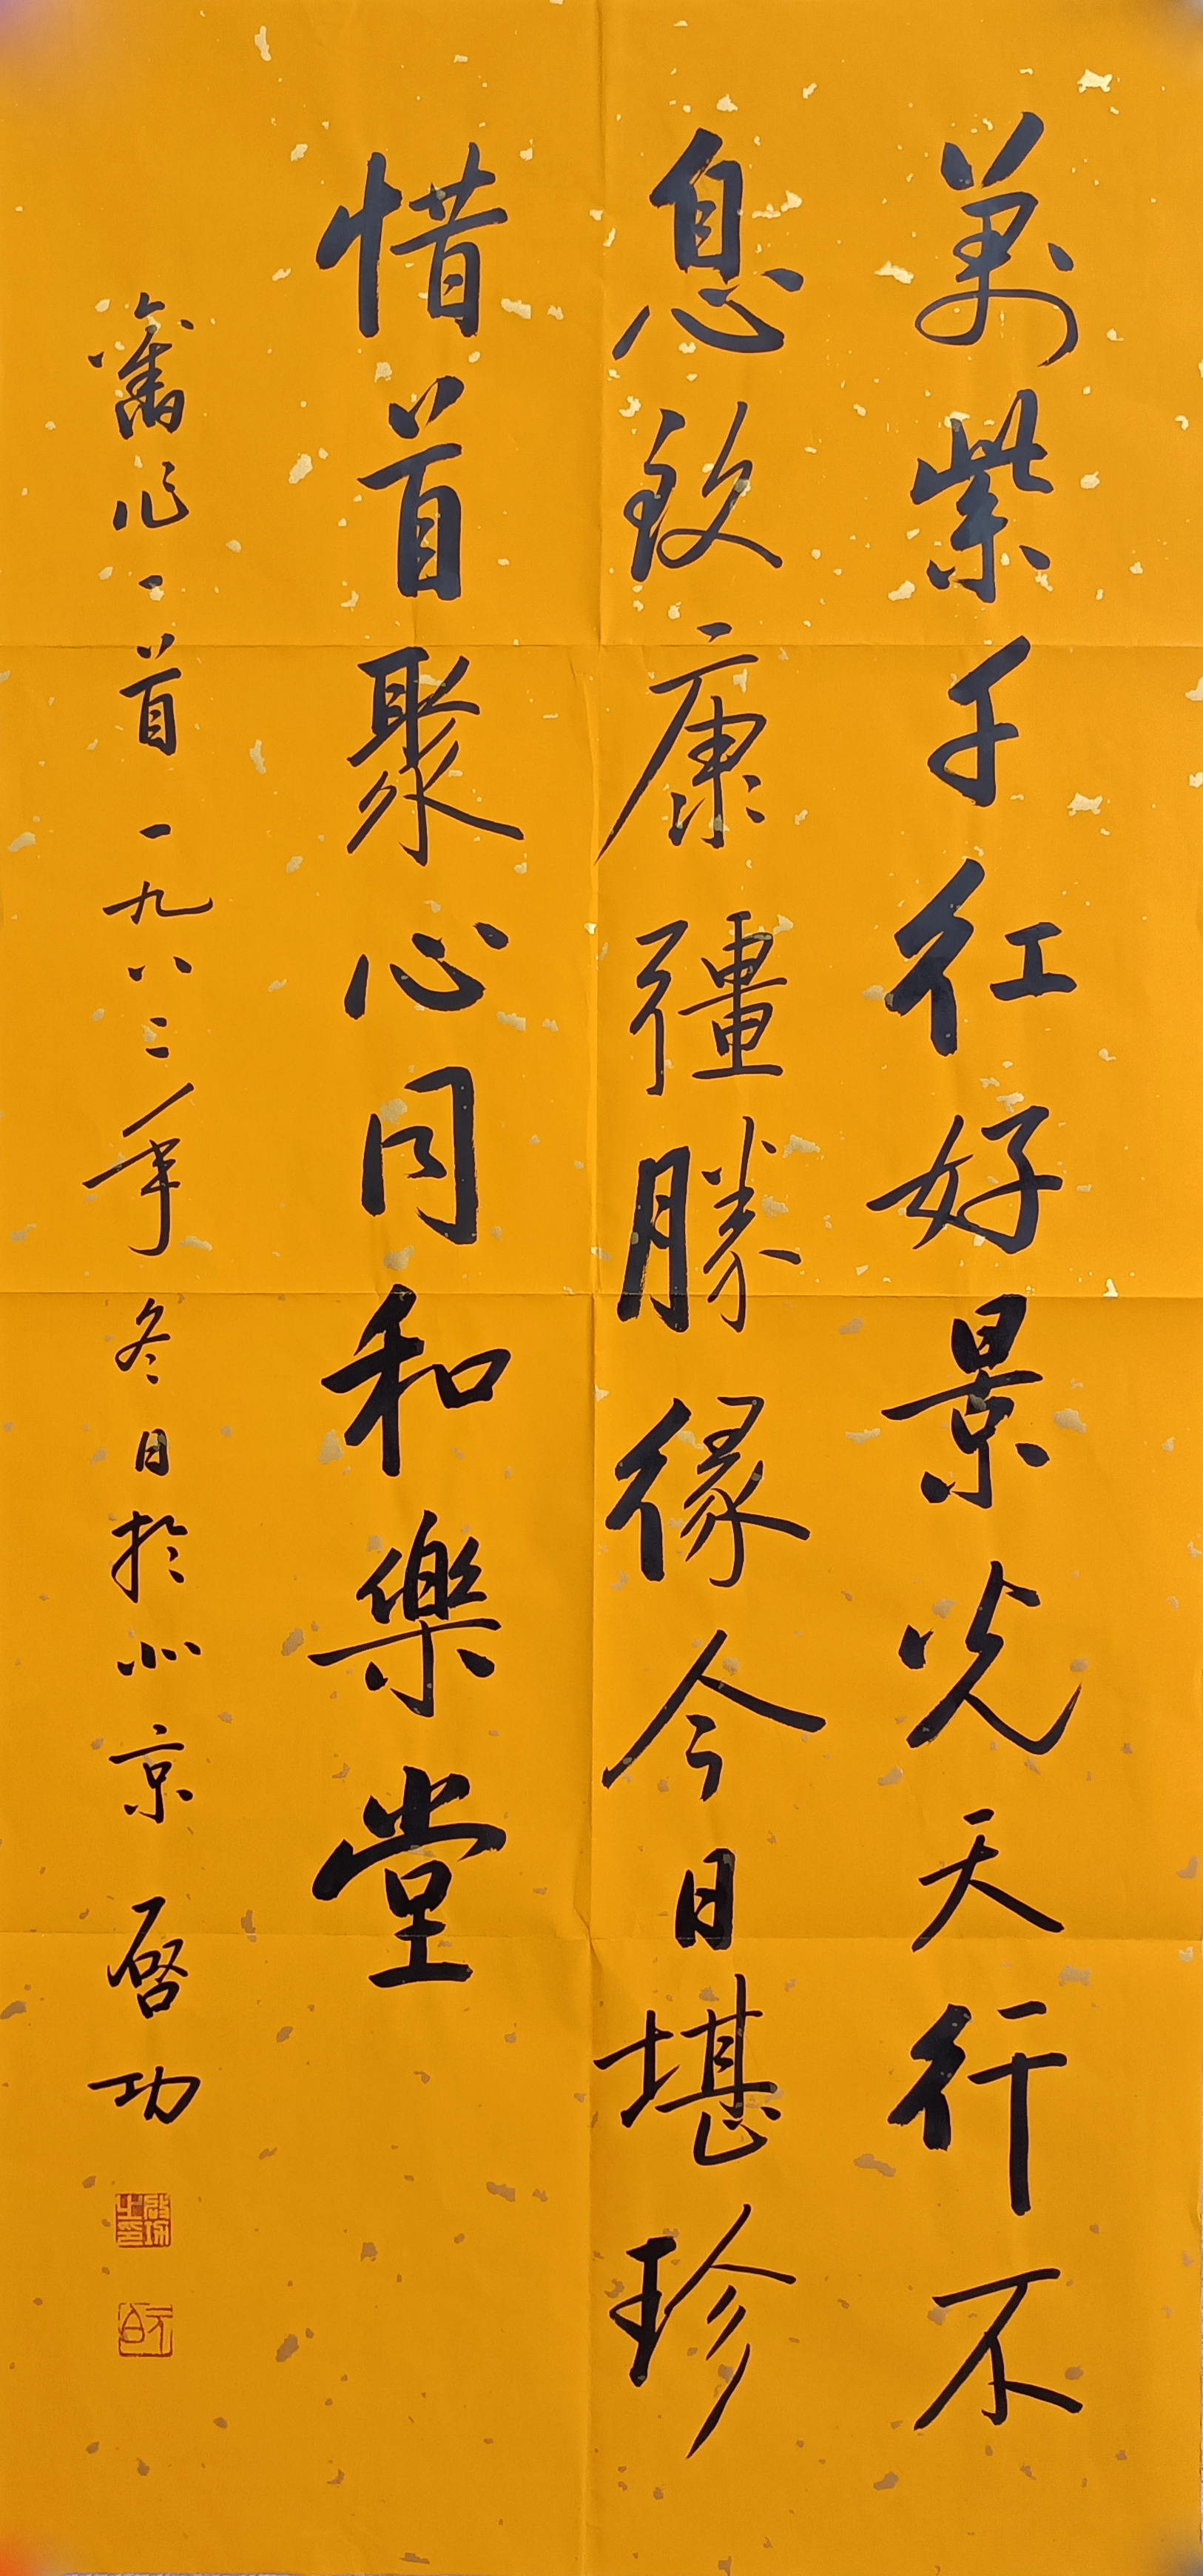 萬紫千紅好景光天行不
息致康彊勝緣今日堪珍
惜首聚心同和樂堂
舊作一首一九八二年冬日於北京 啓功
啟功之印
元白